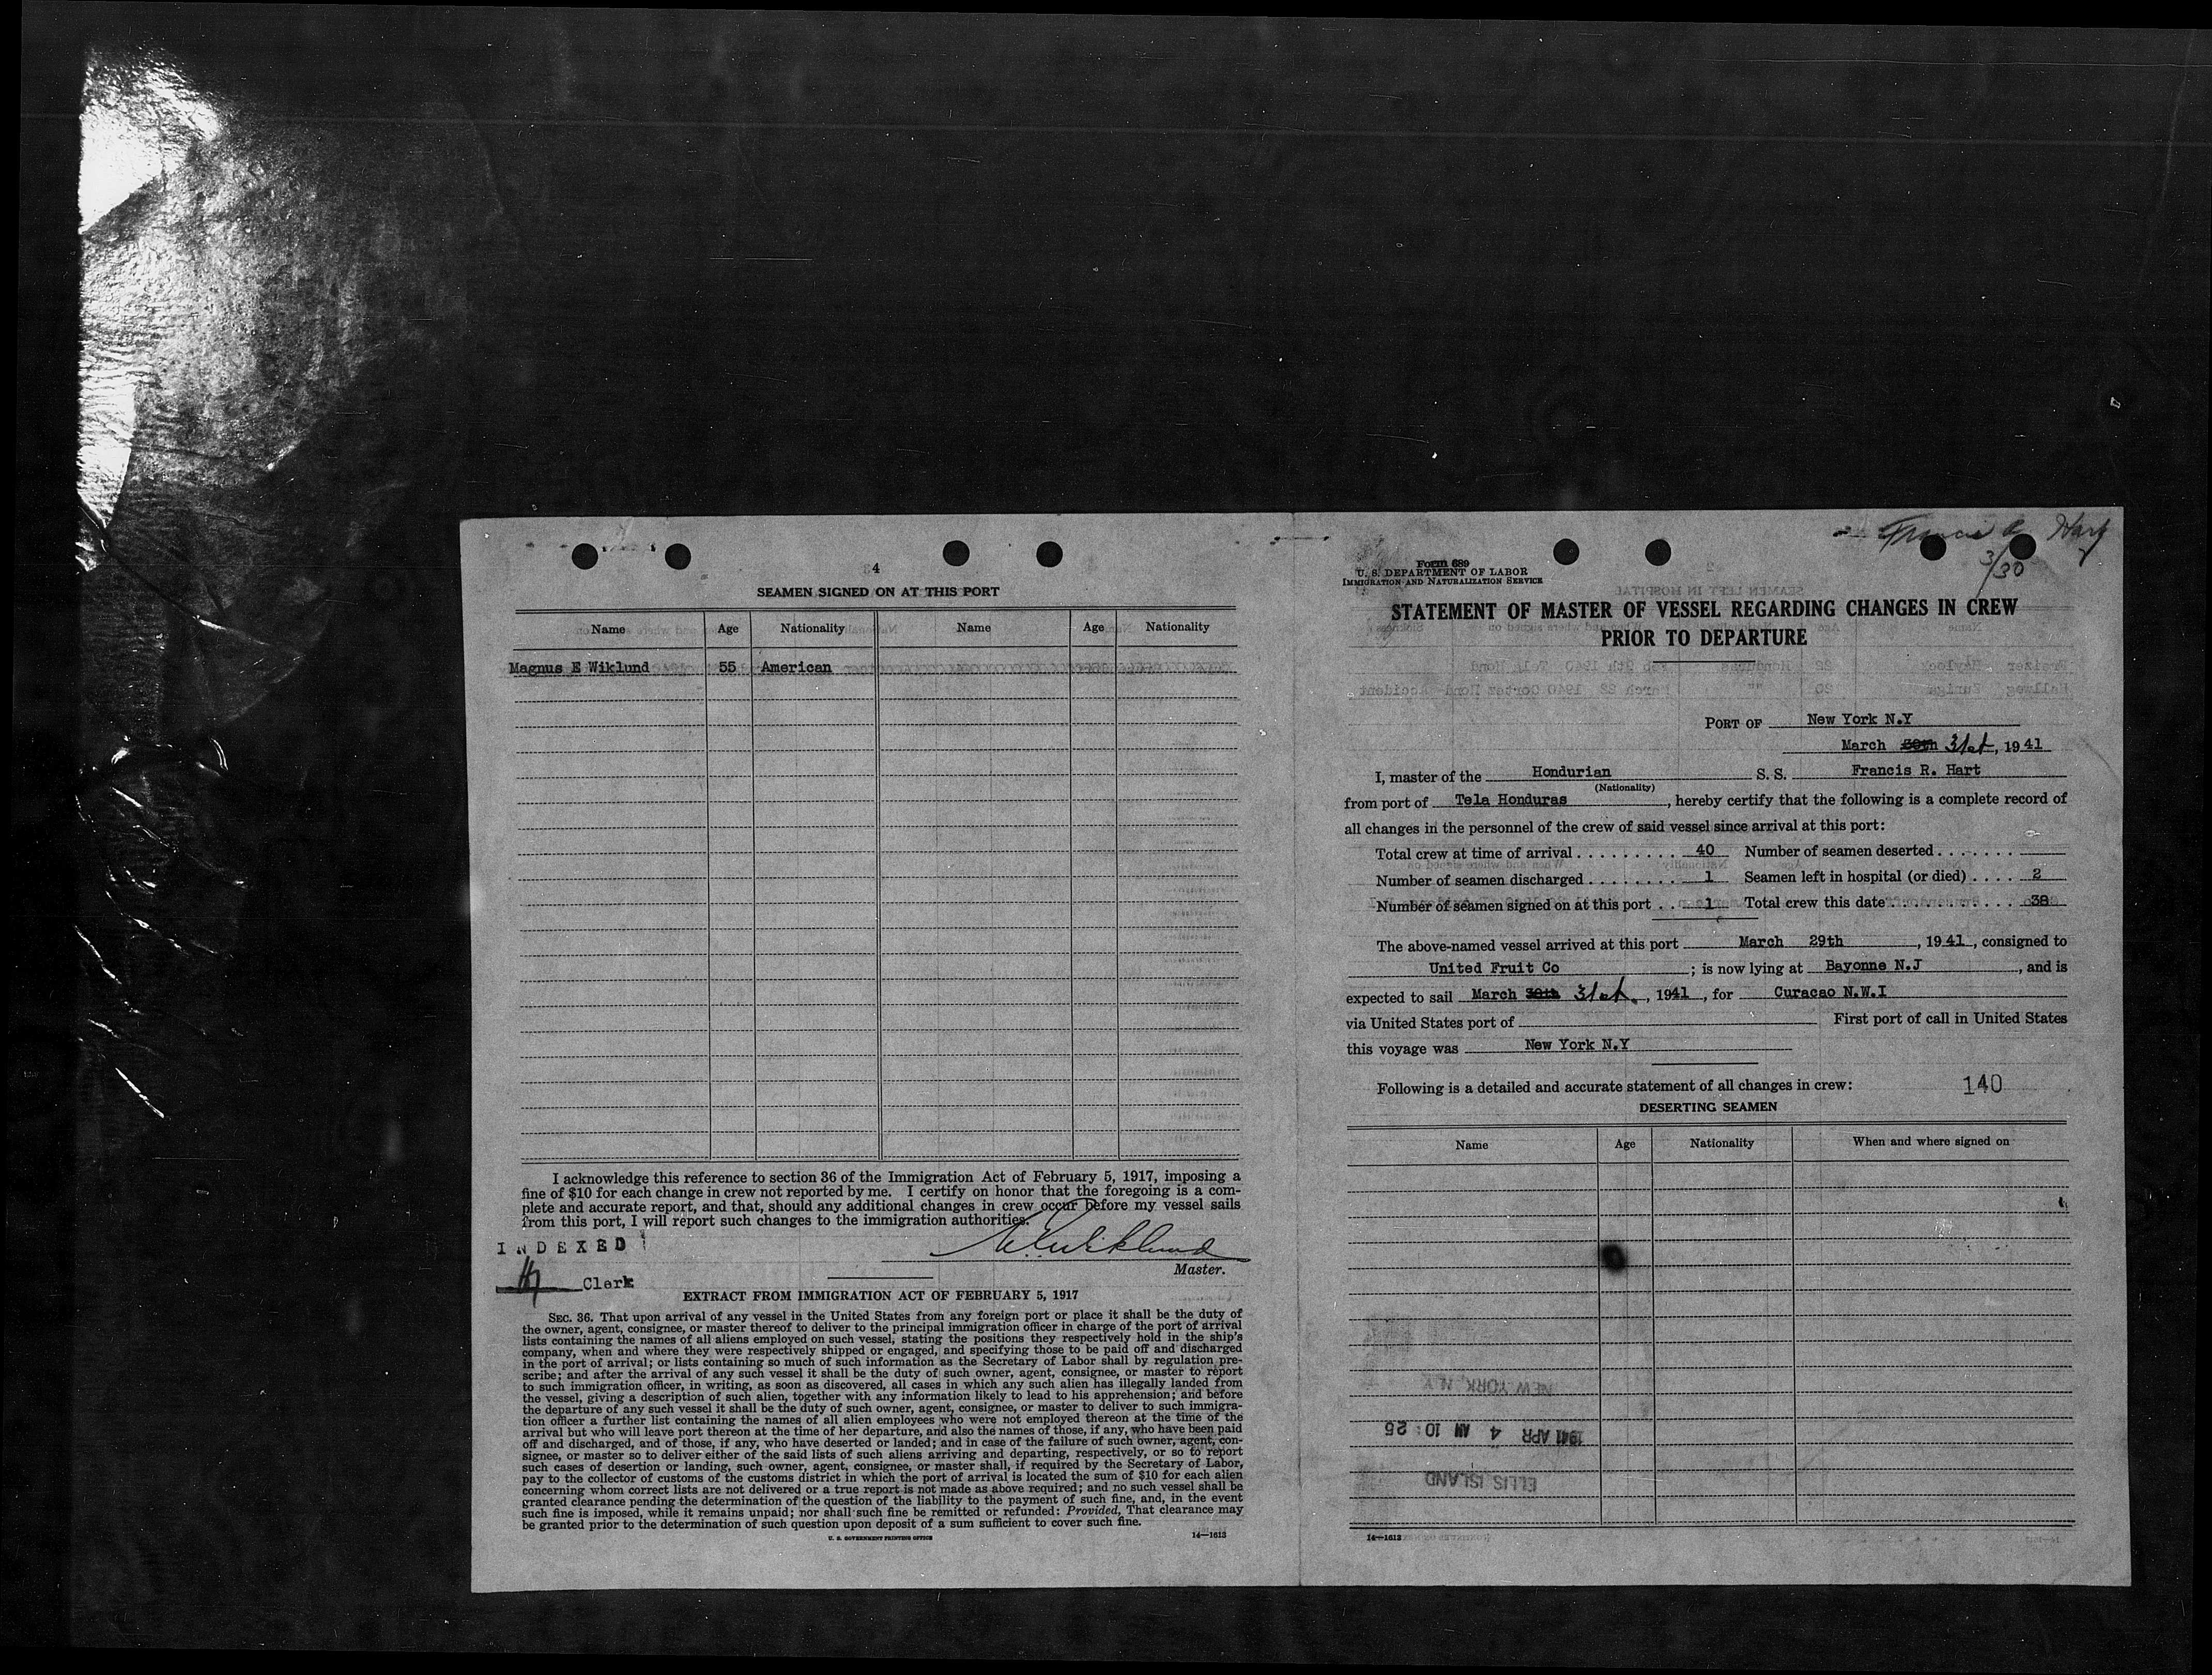 4
SEAMEN SIGNED ON AT THIS PORT
Name Age Nationality Name Age Nationality
Magnus E Wiklund 55 American
I acknowledge this reference to section 36 of the Immigration Act of February 5, 1917, imposing a
fine of $10 for each change in crew not reported by me. I certify on honor that the foregoing is a com-
plete and accurate report, and that, should any additional changes in crew occur before my vessel sails
from this port, I will report such changes to the immigration authorities.
INDEXED
Clerk
Master.
EXTRACT FROM IMMIGRATION ACT OF FEBRUARY 5, 1917
SEC. 36. That upon arrival of any vessel in the United States from any foreign port or place it shall be the duty of
the owner, agent, consignee, or master thereof to deliver to the principal immigration officer in charge of the port of arrival
lists containing the names of all aliens employed on such vessel, stating the positions they respectively hold in the ship's
company, when and where they were respectively shipped or engaged, and specifying those to be paid off and discharged
in the port of arrival; or lists containing so much of such information as the Secretary of Labor shall by regulation pre-
scribe; and after the arrival of any such vessel it shall be the duty of such owner, agent, consignee, or master to report
to such immigration officer, in writing, as soon as discovered, all cases in which any such alien has illegally landed from
the vessel, giving a description of such alien, together with any information likely to lead to his apprehension; and before
the departure of any such vessel it shall be the duty of such owner, agent, consignee, or master to deliver to such immigra-
tion officer a further list containing the names of all alien employees who were not employed thereon at the time of the
arrival but who will leave port thereon at the time of her departure, and also the names of those, if any, who have been paid
off and discharged, and of those, if any, who have deserted or landed; and in case of the failure of such owner, agent, con-
signee, or master so to deliver either of the said lists of such aliens arriving and departing, respectively, or so to report
such cases of desertion or landing, such owner, agent, consignee, or master shall, if required by the Secretary of Labor,
pay to the collector of customs of the customs district in which the port of arrival is located the sum of $10 for each alien
concerning whom correct lists are not delivered or a true report is not made as above required; and no such vessel shall be
granted clearance pending the determination of the question of the liability to the payment of such fine, and, in the event
such fine is imposed, while it remains unpaid; nor shall such fine be remitted or refunded: Provided, That clearance may
be granted prior to the determination of such question upon deposit of a sum sufficient to cover such fine.
U. S. GOVERNMENT PRINTING OFFICE 14—1613
Francis R Hart
3/30
Form 689
U. S. DEPARTMENT OF LABOR
IMMIGRATION AND NATURALIZATION SERVICE
STATEMENT OF MASTER OF VESSEL REGARDING CHANGES IN CREW
PRIOR TO DEPARTURE
PORT OF New York N.Y
March 30th 31st, 1941
I, master of the Hondurian S. S. Francis R. Hart
(Nationality)
from port of Tela Honduras, hereby certify that the following is a complete record of
all changes in the personnel of the crew of said vessel since arrival at this port:
Total crew at time of arrival 40 Number of seamen deserted
Number of seamen discharged 1 Seamen left in hospital (or died) 2
Number of seamen signed on at this port 1 Total crew this date 38
The above-named vessel arrived at this port March 29th, 1941, consigned to
United Fruit Co ; is now lying at Bayonne N.J, and is
expected to sail March 30th 31st, 1941, for Curacao N.W.I
via United States port of First port of call in United States
this voyage was New York N.Y
Following is a detailed and accurate statement of all changes in crew: 140
DESERTING SEAMEN
Name Age Nationality When and where signed on
NEW YORK, N.Y.
1941 APR 4 AM 10:25
ELLIS ISLAND
14—1613